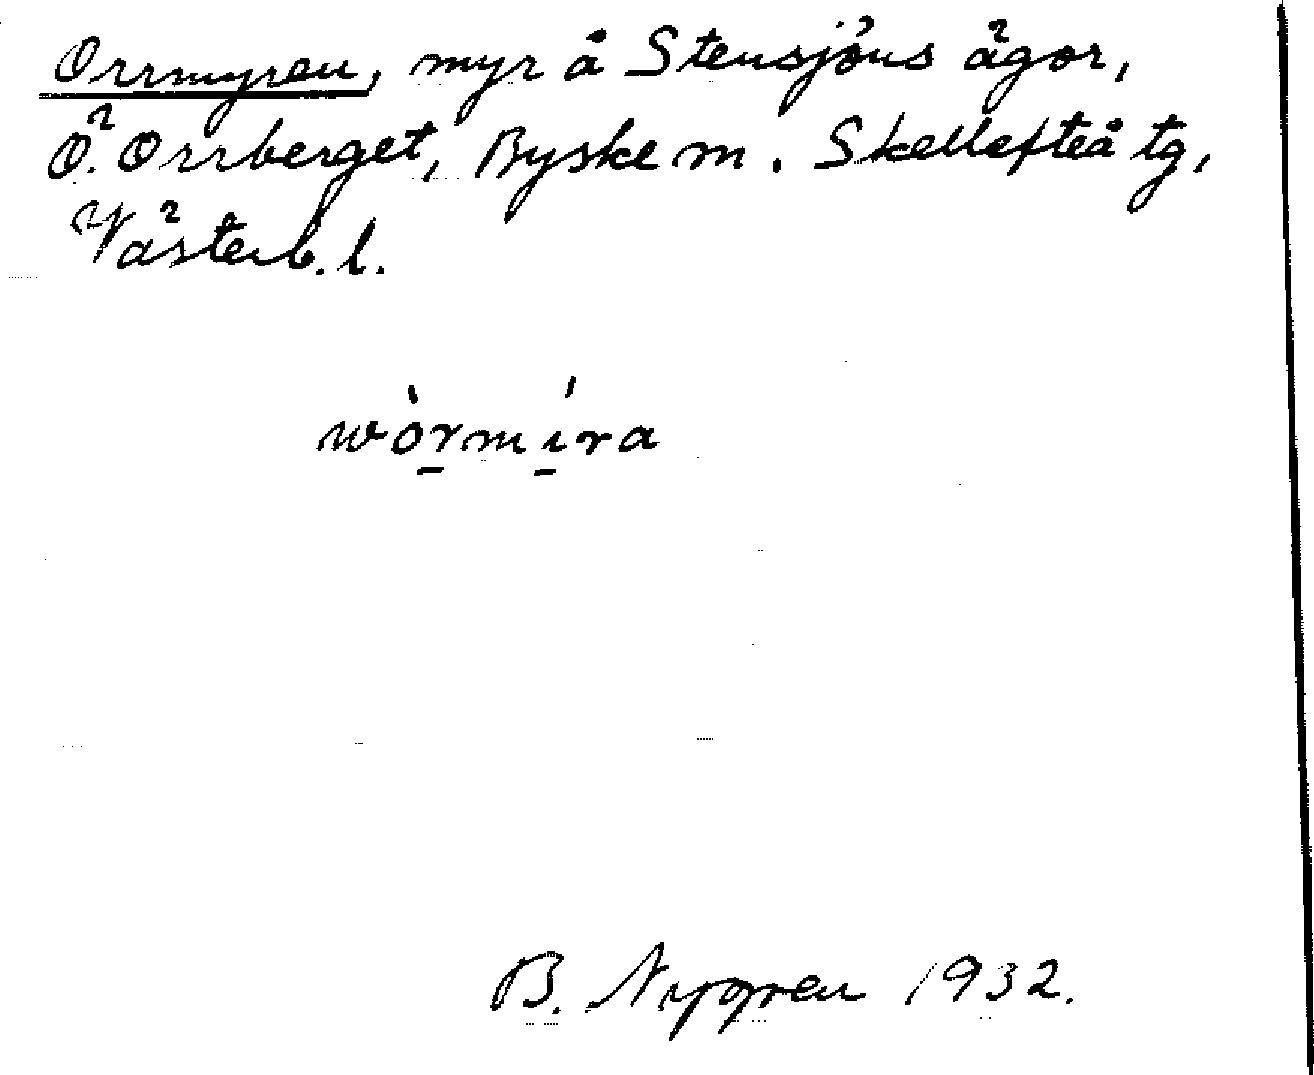 Orrmyren, myr å Stensjöns ägor,
Ö. Orrberget, Byske m. Skellefteå tg,
Västerb. l.
wòrmíra
B. Nygren 1932.